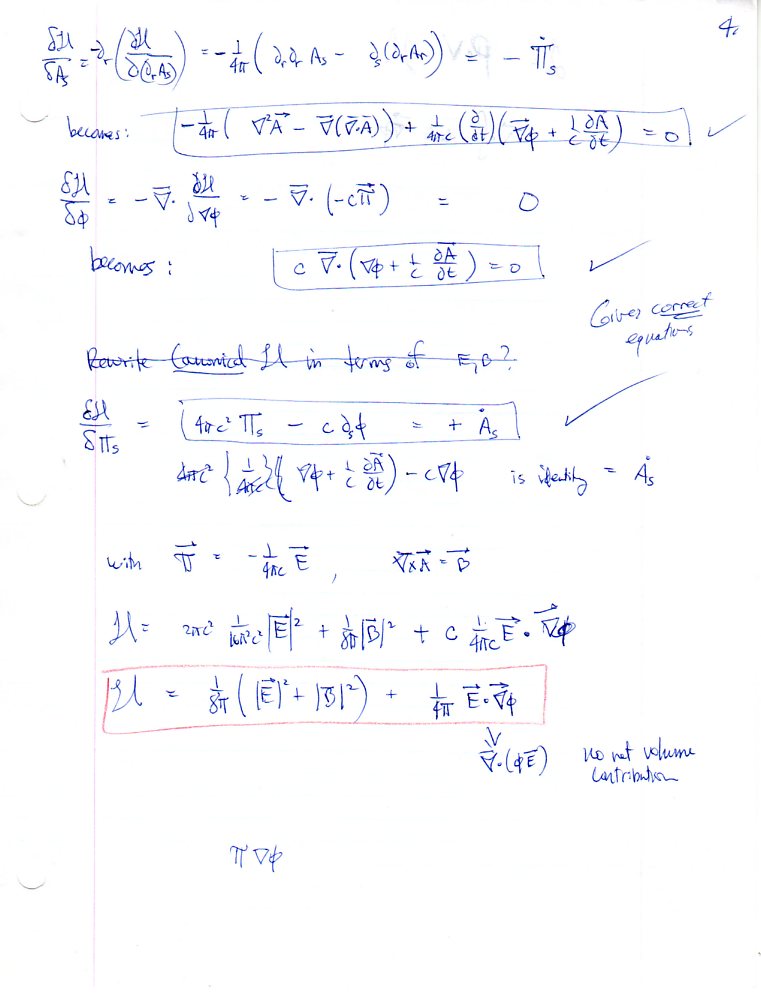 4.
δℋ/δA_s = -∂_r (∂ℋ/∂(∂_r A_s)) = -1/4π ( ∂_r ∂_r A_s - ∂_s(∂_r A_r) ) = - Π̇_s
becomes: -1/4π ( ∇²A⃗ - ∇⃗(∇⃗·A⃗) ) + 1/4πc (∂/∂t)( ∇⃗φ + 1/c ∂A⃗/∂t ) = 0 ✓
δℋ/δφ = -∇⃗· ∂ℋ/∂∇φ = - ∇⃗· (-cΠ⃗) = 0
becomes: c ∇⃗·(∇φ + 1/c ∂A⃗/∂t) = 0 ✓
Gives correct
equations
Rewrite Canonical ℋ in terms of E, B?
δℋ/δΠ_s = 4πc² Π_s - c ∂_s φ = + Ȧ_s ✓
4πc² {1/4πc}( ∇φ + 1/c ∂A⃗/∂t ) - c∇φ is identity = Ȧ_s
with Π⃗ = -1/4πc E⃗ , ∇⃗×A⃗ = B⃗
ℋ = 2πc² 1/16π²c² |E⃗|² + 1/8π |B⃗|² + c 1/4πc E⃗ · ∇⃗φ
ℋ = 1/8π ( |E⃗|² + |B⃗|² ) + 1/4π E⃗·∇⃗φ
∇⃗·(φE⃗) no net volume
contribution
Π ∇φ